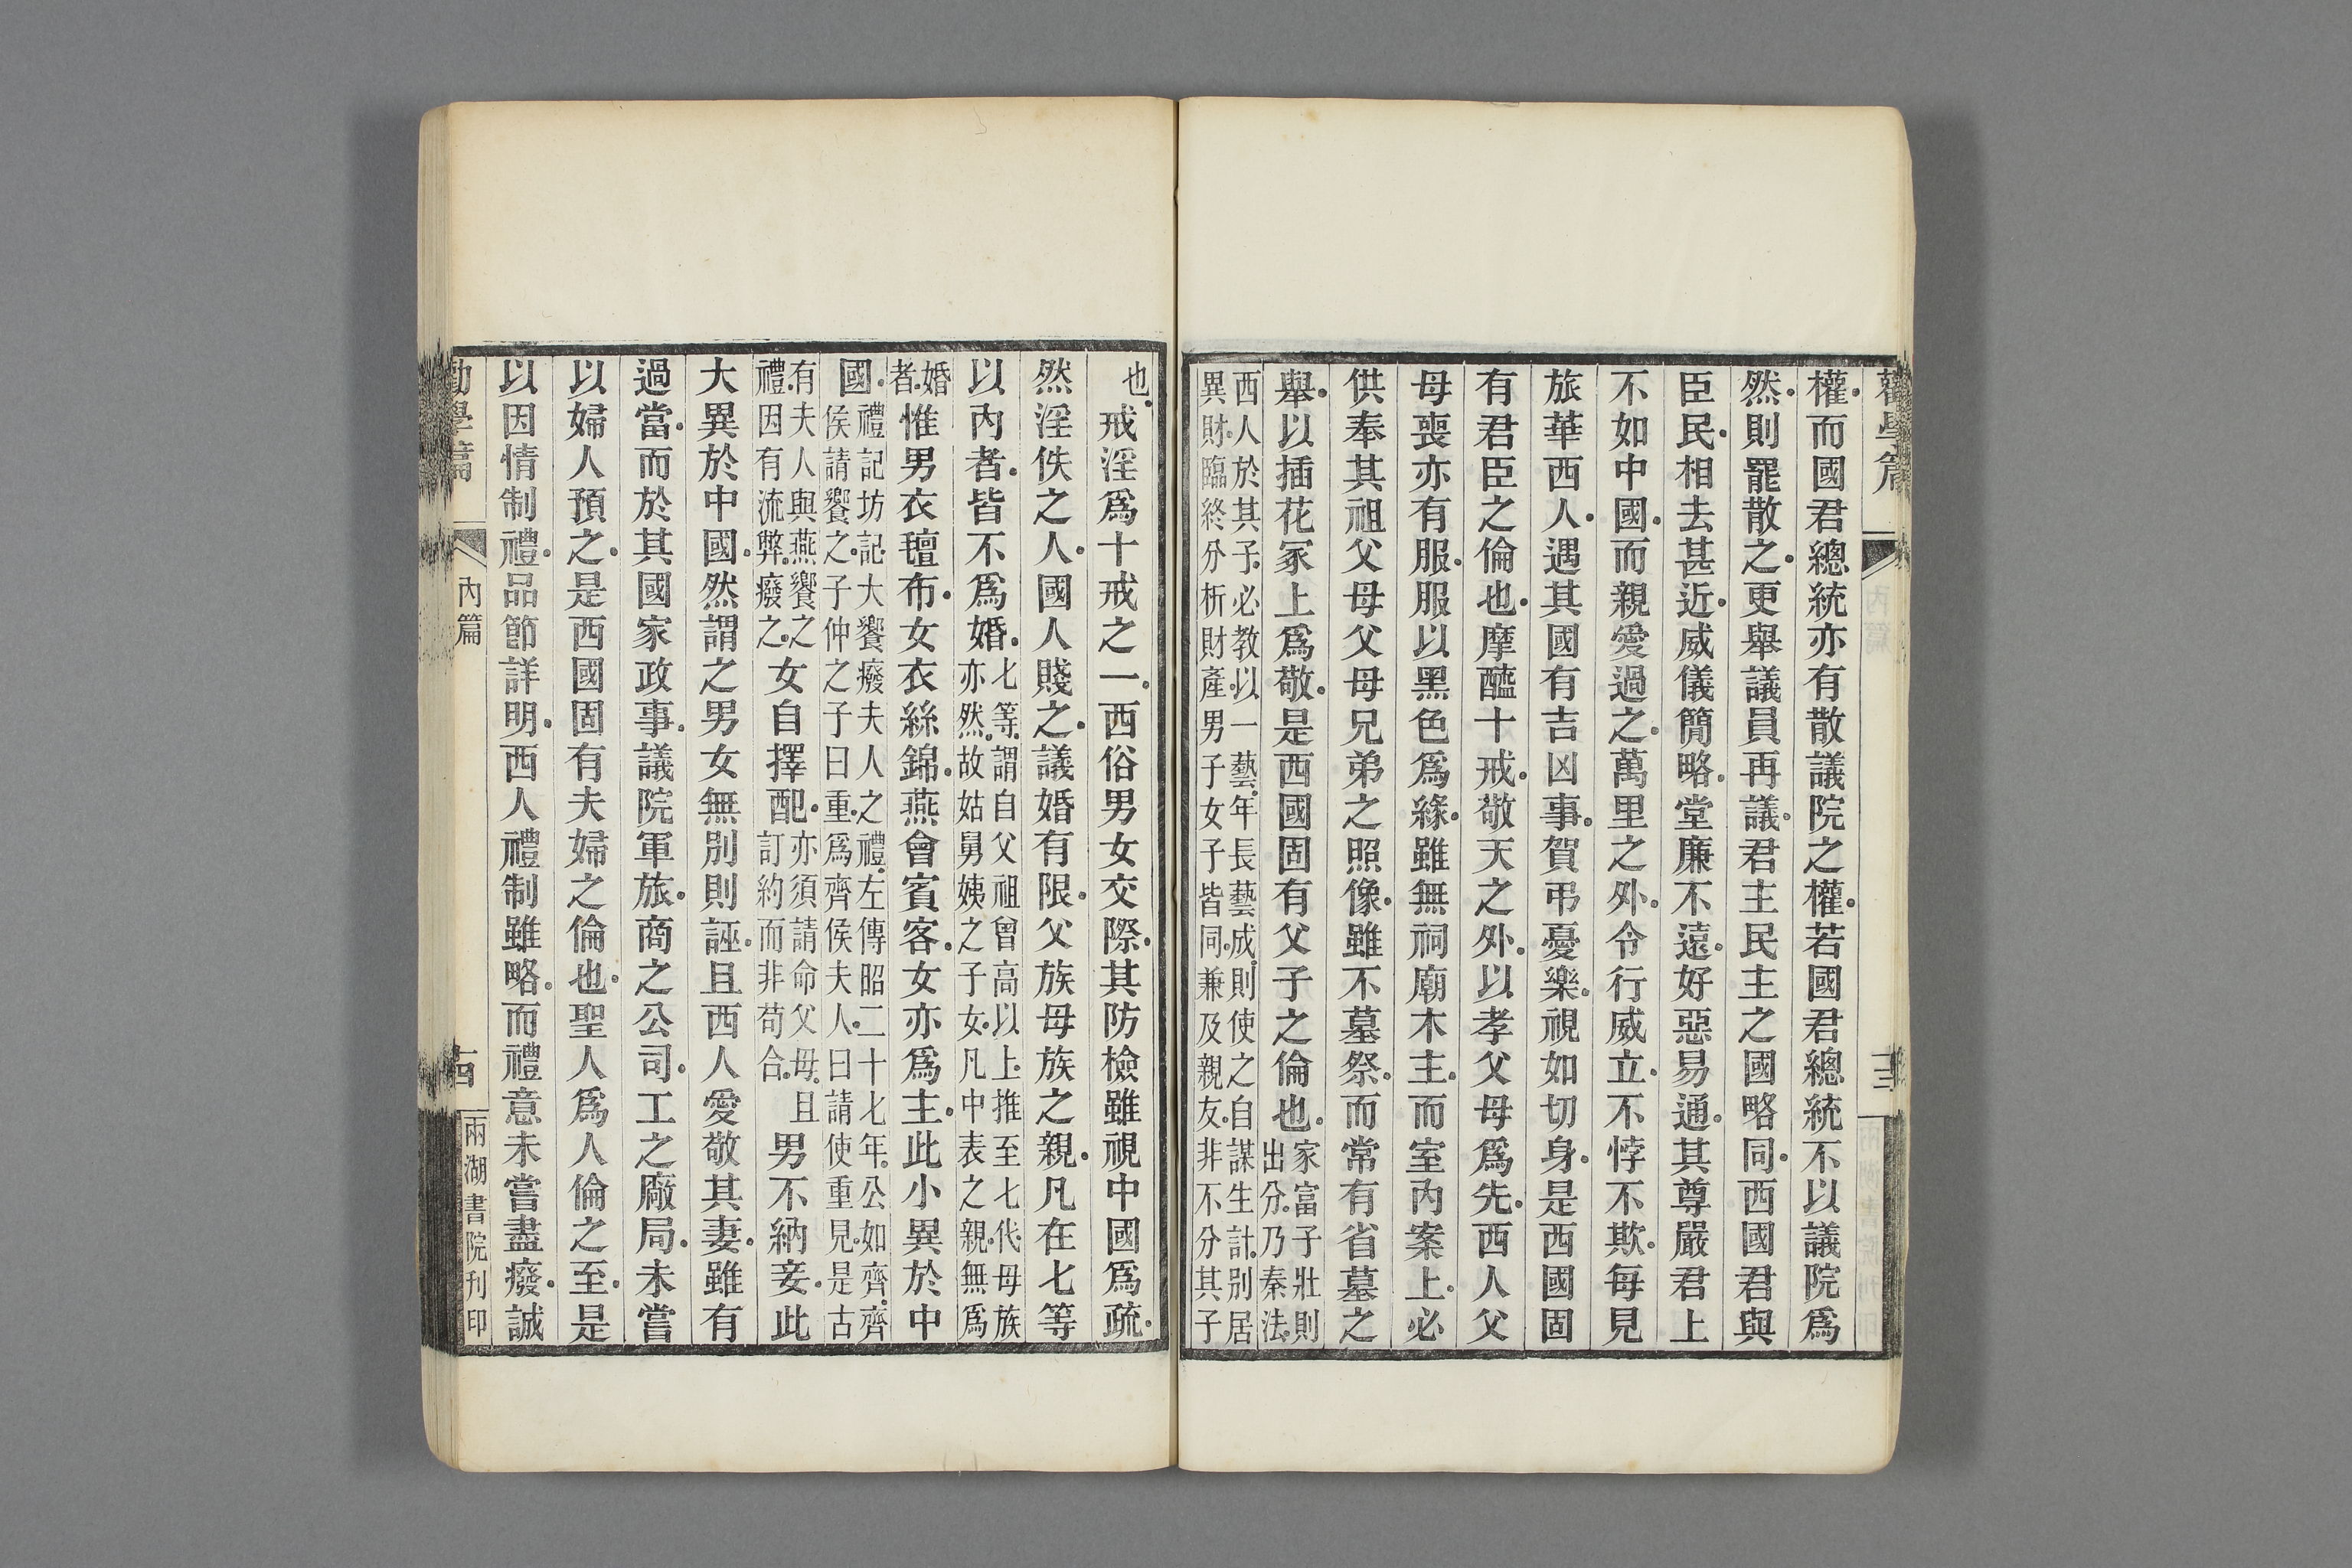 勸學篇
內篇
十三
兩湖書院刊印
權。而國君總統亦有散議院之權。若國君總統不以議院爲
然。則罷散之。更舉議員再議。君主民主之國略同。西國君與
臣民。相去甚近。威儀簡略。堂廉不遠。好惡易通。其尊嚴君上
不如中國。而親愛過之。萬里之外。令行威立。不悖不欺。每見
旅華西人。遇其國有吉凶事。賀弔憂樂。視如切身。是西國固
有君臣之倫也。摩醯十戒。敬天之外。以孝父母爲先。西人父
母喪亦有服。服以黑色爲緣。雖無祠廟木主。而室內案上。必
供奉其祖父母父母兄弟之照像。雖不墓祭。而常有省墓之
舉。以插花冢上爲敬。是西國固有父子之倫也。家富子壯則
出分。乃秦法。
西人於其子。必教以一藝。年長藝成。則使之自謀生計。別居
異財。臨終分析財產。男子女子皆同。兼及親友。非不分其子
也。戒淫爲十戒之一。西俗男女交際。其防檢雖視中國爲疏。
然淫佚之人。國人賤之。議婚有限。父族母族之親。凡在七等
以內者。皆不爲婚。七等。謂自父祖曾高以上。推至七代。母族
亦然。故姑舅姨之子女。凡中表之親。無爲
婚
者。惟男衣氊布。女衣絲錦。燕會賓客。女亦爲主。此小異於中
國。禮記坊記。大饗廢夫人之禮。左傳昭二十七年。公如齊。齊
侯請饗之。子仲之子曰重。爲齊侯夫人。曰請使重見。是古
有夫人與燕饗之
禮。因有流弊。廢之。女自擇配。亦須請命父母。且
訂約而非苟合。男不納妾。此
大異於中國。然謂之男女無別則誣。且西人愛敬其妻。雖有
過當。而於其國家政事。議院軍旅。商之公司。工之廠局。未嘗
以婦人預之。是西國固有夫婦之倫也。聖人爲人倫之至。是
以因情制禮。品節詳明。西人禮制雖略。而禮意未嘗盡廢。誠
勸學篇
內篇
十四
兩湖書院刊印